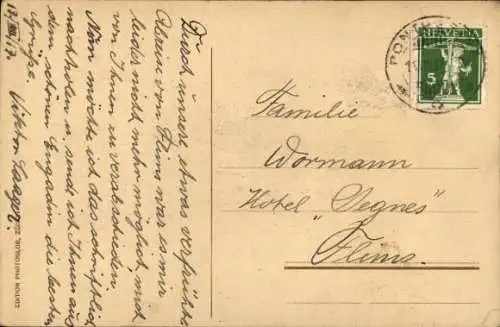 Durch unsere etwas verfrühte
Abreise von Flims war es mir
leider nicht mehr möglich, mich
von Ihnen zu verabschieden.
Nun möchte ich das schriftlich
nachholen u. send ich Ihnen aus
dem schönen Engadin die besten
Grüsse.
Viktor Saager.
HELVETIA
5
PONT
Familie
Wormann
Hotel „Segnes"
Flims.
EDITION PHOTOGLOB, ZÜ